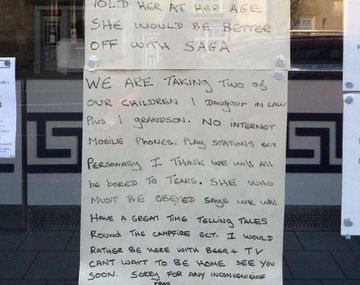 TOLD HER AT HER AGE
SHE WOULD BE BETTER
OFF WITH SAGA
WE ARE TAKING TWO OF
OUR CHILDREN 1 DAUGHTER IN LAW
PLUS 1 GRANDSON. NO INTERNET
MOBILE PHONES, PLAY STATIONS ECT
PERSONALLY I THINK WE WILL ALL
BE BORED TO TEARS. SHE WHO
MUST BE OBEYED SAYS WE WILL
HAVE A GREAT TIME TELLING TALES
ROUND THE CAMPFIRE ECT. I WOULD
RATHER BE HERE WITH BEER + TV
CANT WAIT TO BE HOME SEE YOU
SOON. SORRY FOR ANY INCONVENIENCE
FROM